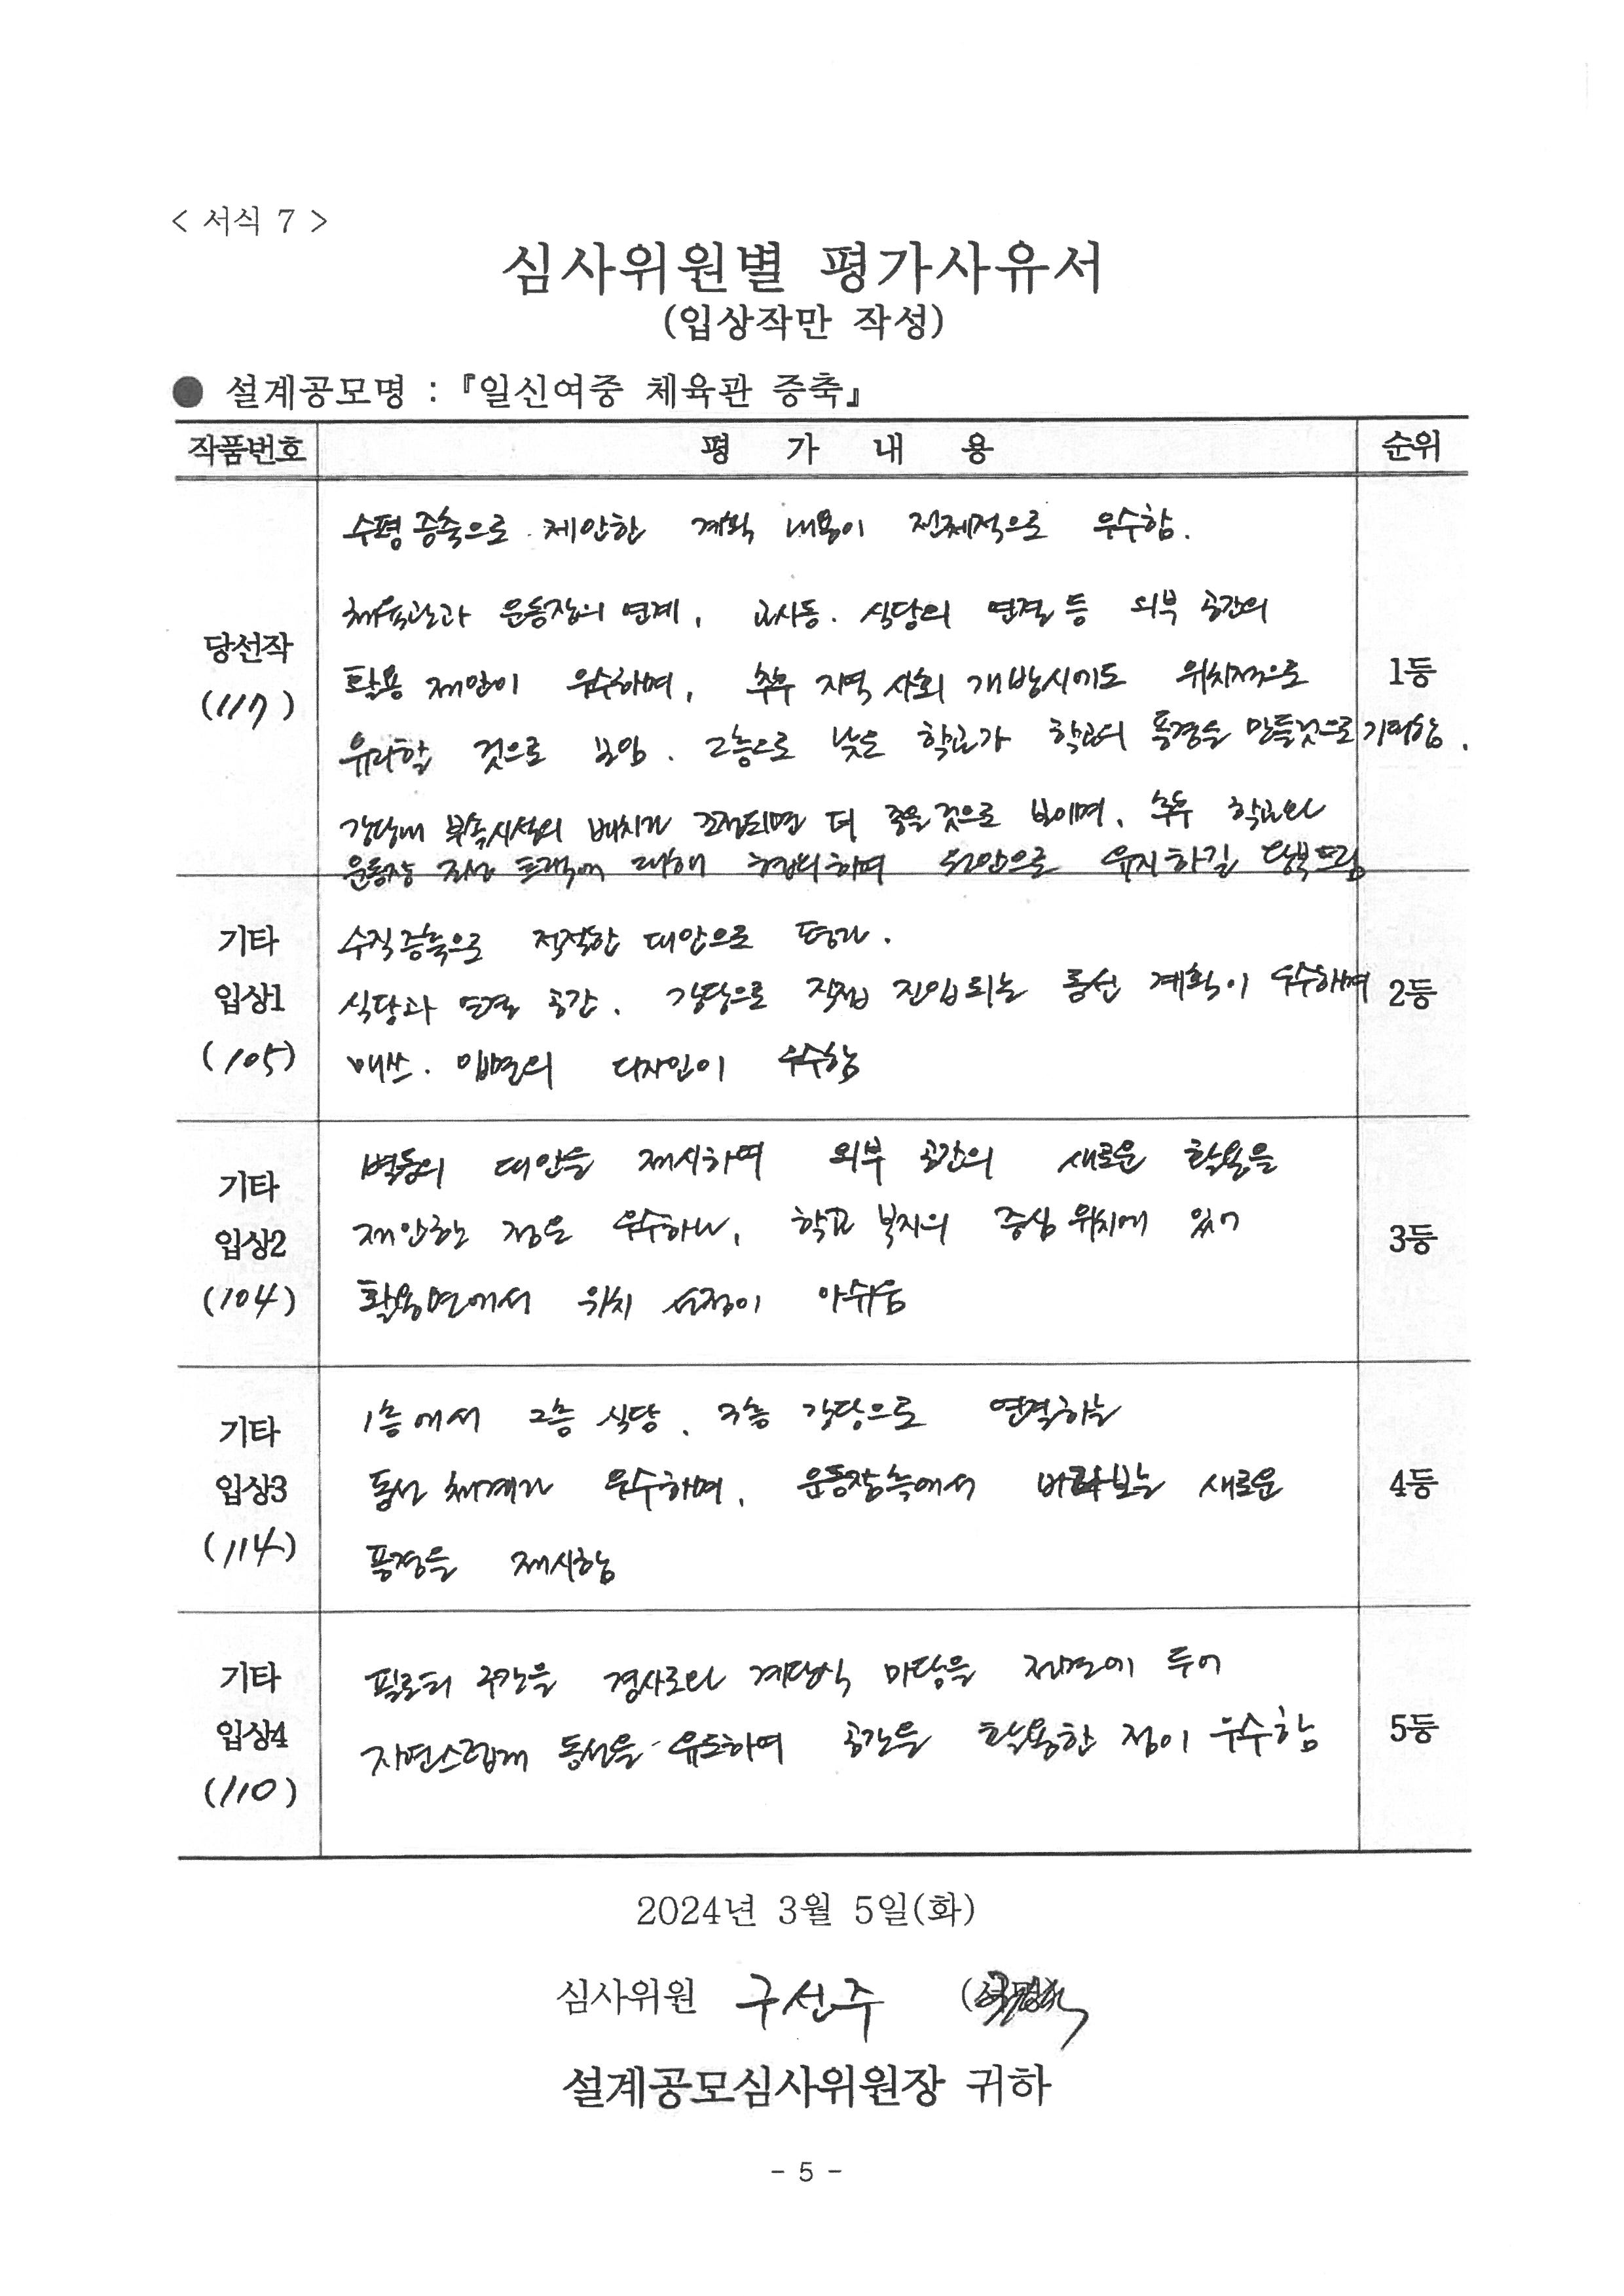 < 서식 7 >
심사위원별 평가사유서
(입상작만 작성)
● 설계공모명 : 『일신여중 체육관 증축』
작품번호 평 가 내 용 순위
당선작
(117)
수평증축으로 제안한 계획 내용이 전체적으로 우수함.
체육관과 운동장의 연계, 교사동. 식당의 연결 등 외부 공간의
활용 제안이 우수하며, 추후 지역 사회 개방시에도 위치적으로
유리할 것으로 보임. 2층으로 낮은 학교가 학교의 풍경을 만들것으로 기대함.
강당내 부속시설의 배치가 조정되면 더 좋을 것으로 보이며, 추후 학교와
운동장 조성 트랙에 대해 협의하며 원안으로 유지하길 당부드림
1등
기타
입상1
(105)
수직증축으로 적절한 대안으로 평가.
식당과 연결 공간. 강당으로 직접 진입되는 동선 계획이 우수하며
매쓰. 입면의 디자인이 우수함
2등
기타
입상2
(104)
별동의 대안을 제시하여 외부 공간의 새로운 활용을
제안한 점은 우수하나, 학교 부지의 중심 위치에 있어
활용면에서 위치 선정이 아쉬움
3등
기타
입상3
(114)
1층에서 2층 식당. 3층 강당으로 연결하는
동선 체계가 우수하며, 운동장측에서 바라보는 새로운
풍경을 제시함
4등
기타
입상4
(110)
필로티 구간을 경사로와 계단식 마당을 전면에 두어
자연스럽게 동선을 유도하여 공간을 활용한 점이 우수함
5등
2024년 3월 5일(화)
심사위원 구선주
설계공모심사위원장 귀하
- 5 -